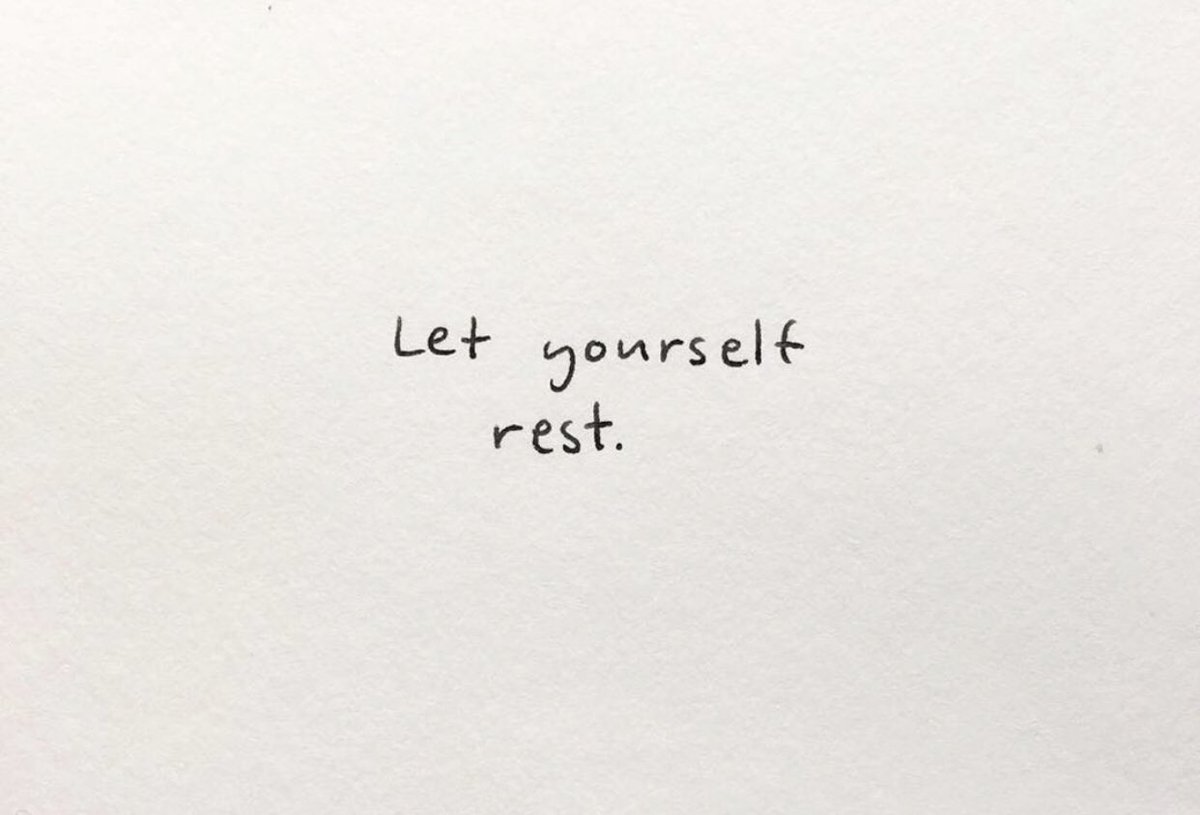 Let yourself
rest.